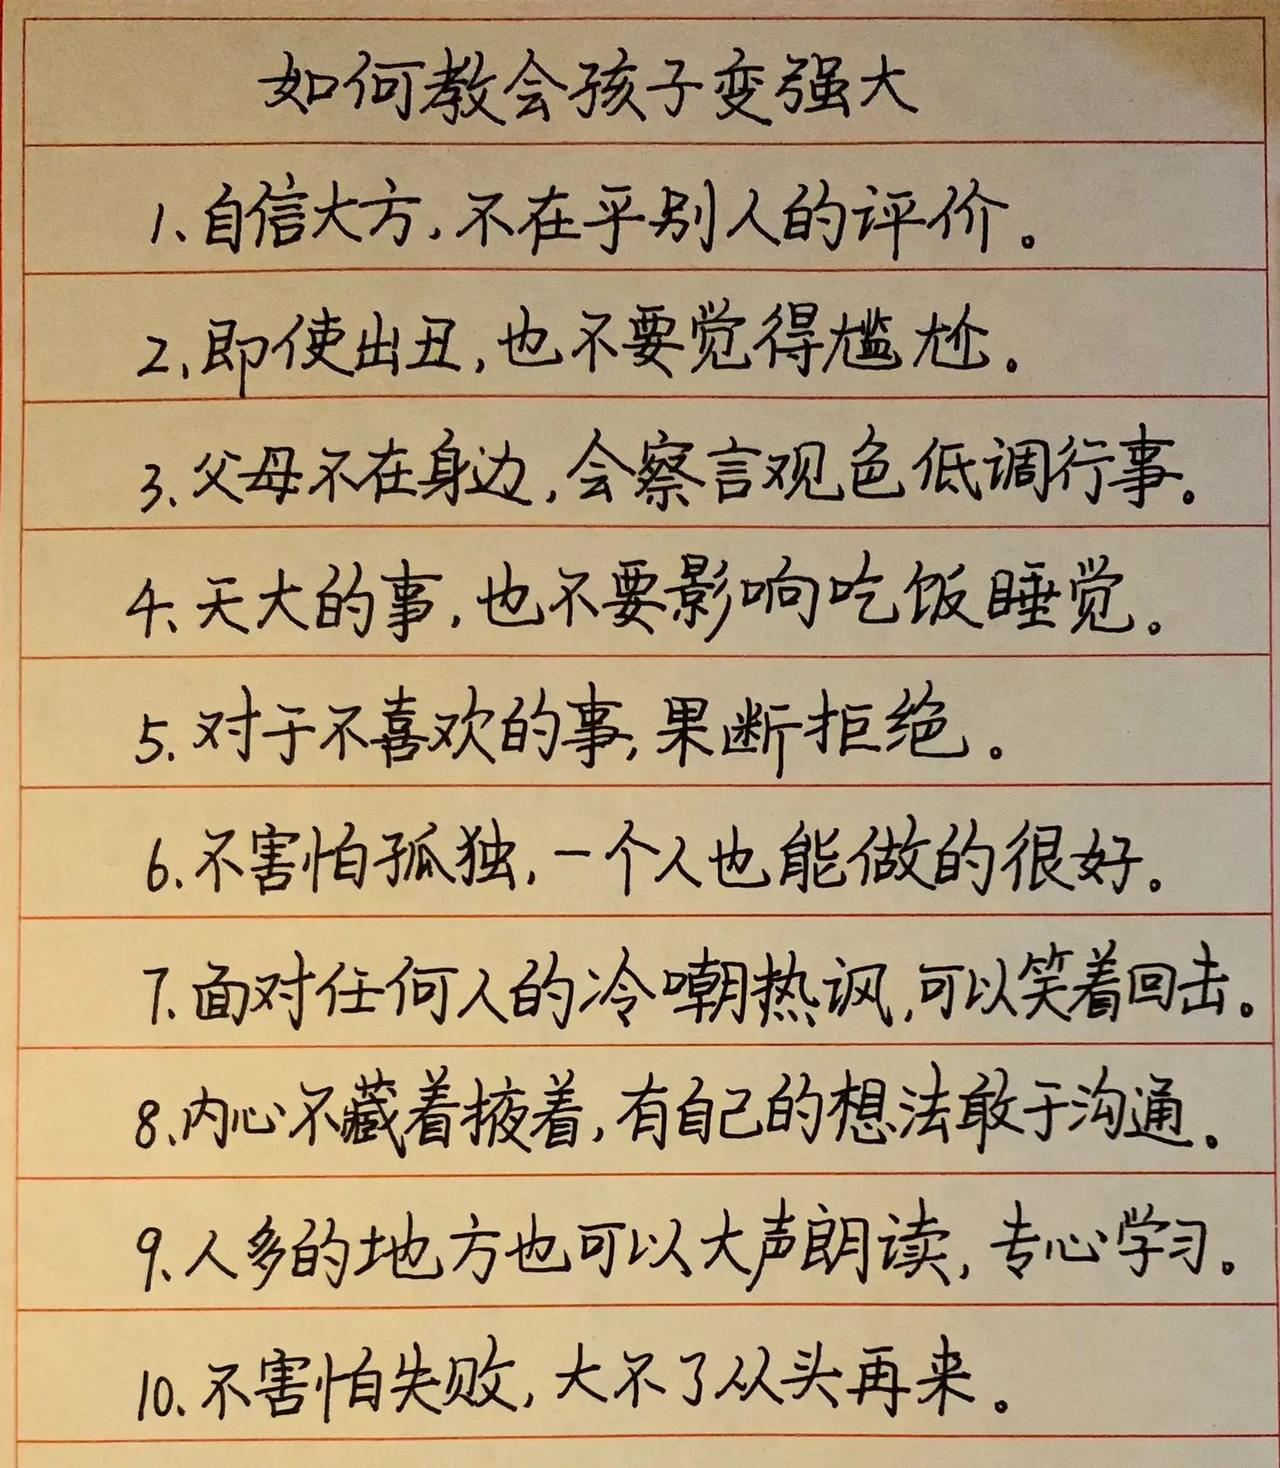 如何教会孩子变强大
1、自信大方,不在乎别人的评价。
2、即使出丑,也不要觉得尴尬。
3、父母不在身边,会察言观色低调行事。
4、天大的事,也不要影响吃饭睡觉。
5、对于不喜欢的事,果断拒绝。
6、不害怕孤独,一个人也能做的很好。
7、面对任何人的冷嘲热讽,可以笑着回击。
8、内心不藏着掖着,有自己的想法敢于沟通。
9、人多的地方也可以大声朗读,专心学习。
10、不害怕失败,大不了从头再来。